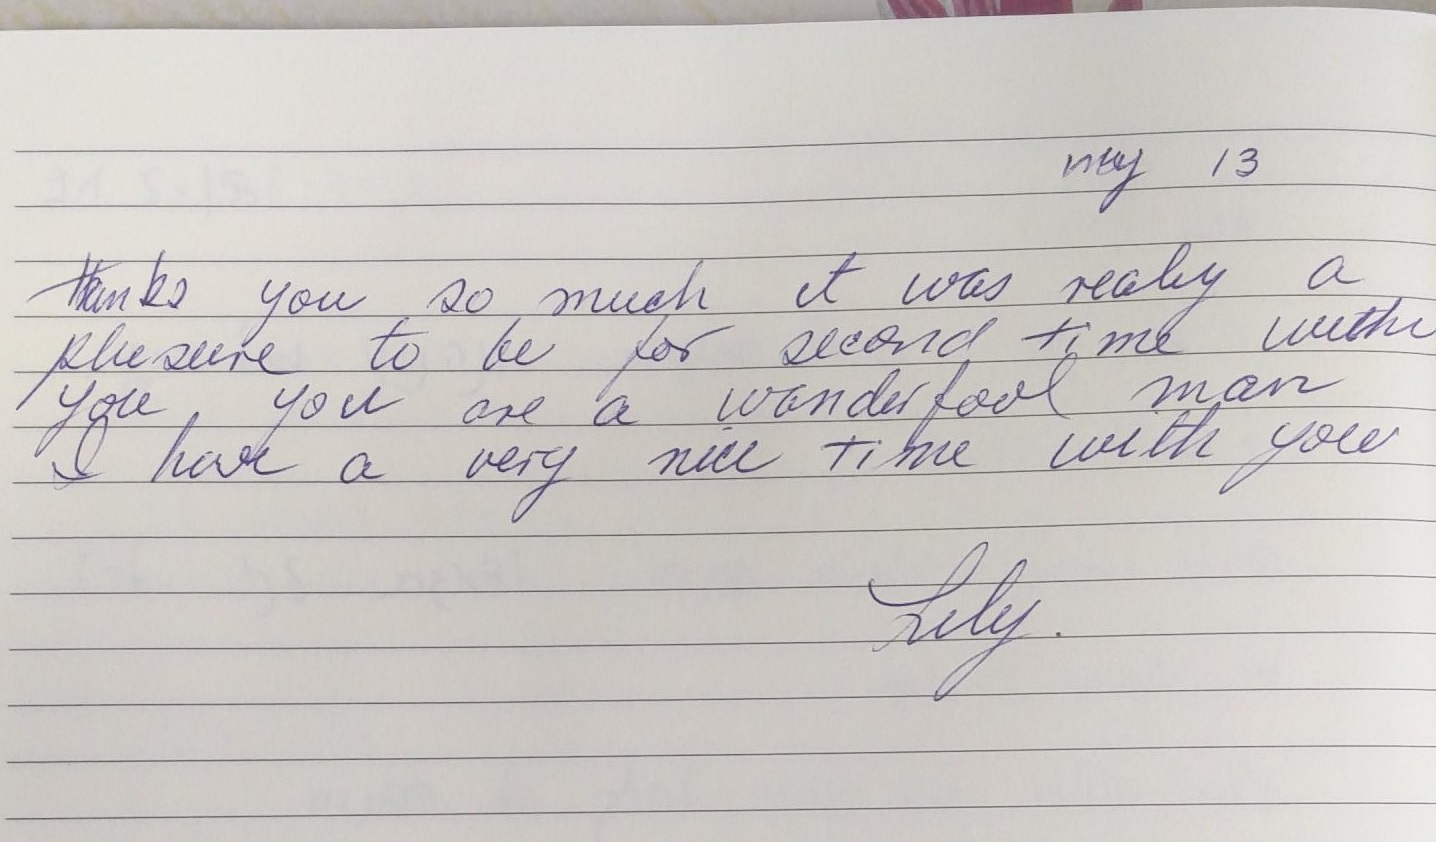 may 13
thanks you so much it was realy a
pleseure to be for second time with
you, you are a wanderfool man
I have a very nice time with you
Lily.